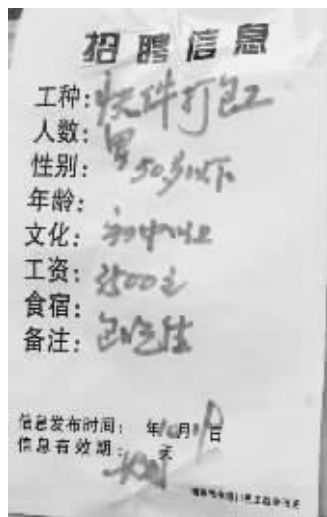 招聘信息
工种:快件打包工
人数:男
性别:50岁以下
年龄:
文化:初中以上
工资:3500元
食宿:
备注:包吃住
信息发布时间: 年10月19日
信息有效期: 天